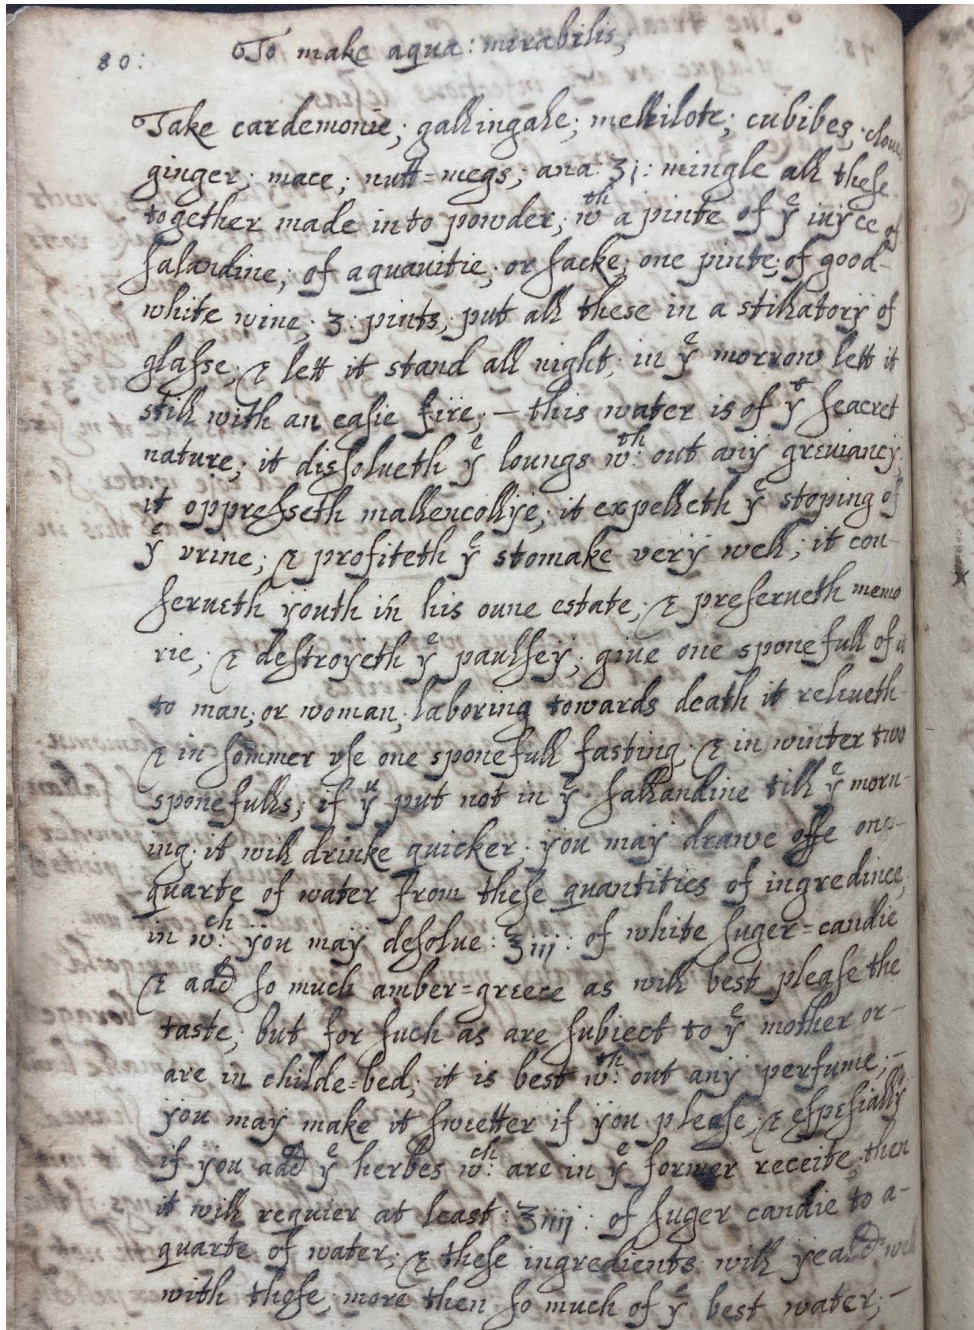 80:
To make aqua: mirabilis,
Take cardemonie; gallingale; mellilote; cubibes; clove
ginger; mace; nutt=megs; ana: ʒi: mingle all these
together made into powder; wᵗʰ a pinte of yᵉ iuyce of
salandine; of aquauitie; or sacke; one pinte; of good-
white wine; 3: pints; put all these in a stillatory of
glasse; & lett it stand all night; in yᵉ morrow lett it
still with an easie fire; — this water is of yᵗ seacret
nature; it dissolueth yᵉ loungs wᵗʰ: out any greuiancy;
it oppresseth mallencollye; it expelleth yᵉ stoping of
yᵉ vrine; & profiteth yᵉ stomake very well; it con-
serueth youth in his oune estate; & preserueth memo
rie; & destroyeth yᵉ paulsey; giue one sponefull of it
to man; or woman; laboring towards death it releueth-
& in sommer vse one sponefull fasting; & in winter two
sponefulls; if yᵘ put not in yᵉ sallandine till yᵉ morn-
ing; it will drinke quicker; you may drawe offe one-
quarte of water from these quantities of ingredince;
in wᶜʰ: you may desolue: ʒiij: of white suger=candie
& add so much amber=greece as will best please the
taste; but for such as are subiect to yᵉ mother or-
are in childe=bed; it is best wᵗʰ: out any perfume; —
you may make it swetter if you please; & espesially
if you add yᵉ herbes wᶜʰ: are in yᵉ former receite; then
it will requier at least: ʒiiij: of suger candie to a-
quarte of water; & these ingredients will yeald well
with those; more then so much of yᵉ best water; —